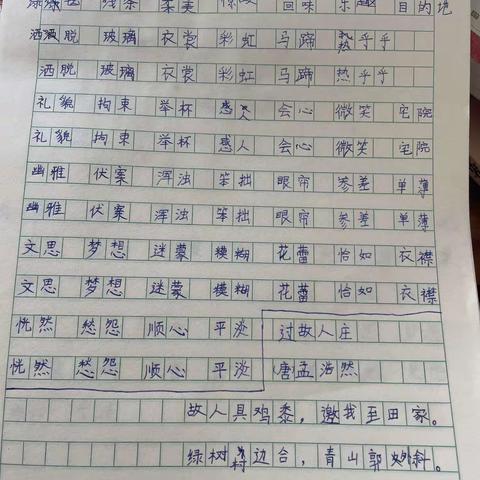 线条 柔美 回味 乐趣 目的地
洒脱 玻璃 衣裳 彩虹 马蹄 热乎乎
洒脱 玻璃 衣裳 彩虹 马蹄 热乎乎
礼貌 拘束 举杯 感人 会心 微笑 宅院
礼貌 拘束 举杯 感人 会心 微笑 宅院
幽雅 伏案 浑浊 笨拙 眼帘 参差 单薄
幽雅 伏案 浑浊 笨拙 眼帘 参差 单薄
文思 梦想 迷蒙 模糊 花蕾 恰如 衣襟
文思 梦想 迷蒙 模糊 花蕾 恰如 衣襟
恍然 愁怨 顺心 平淡 过故人庄
恍然 愁怨 顺心 平淡 唐孟浩然
故人具鸡黍，邀我至田家。
绿树村边合，青山郭外斜。